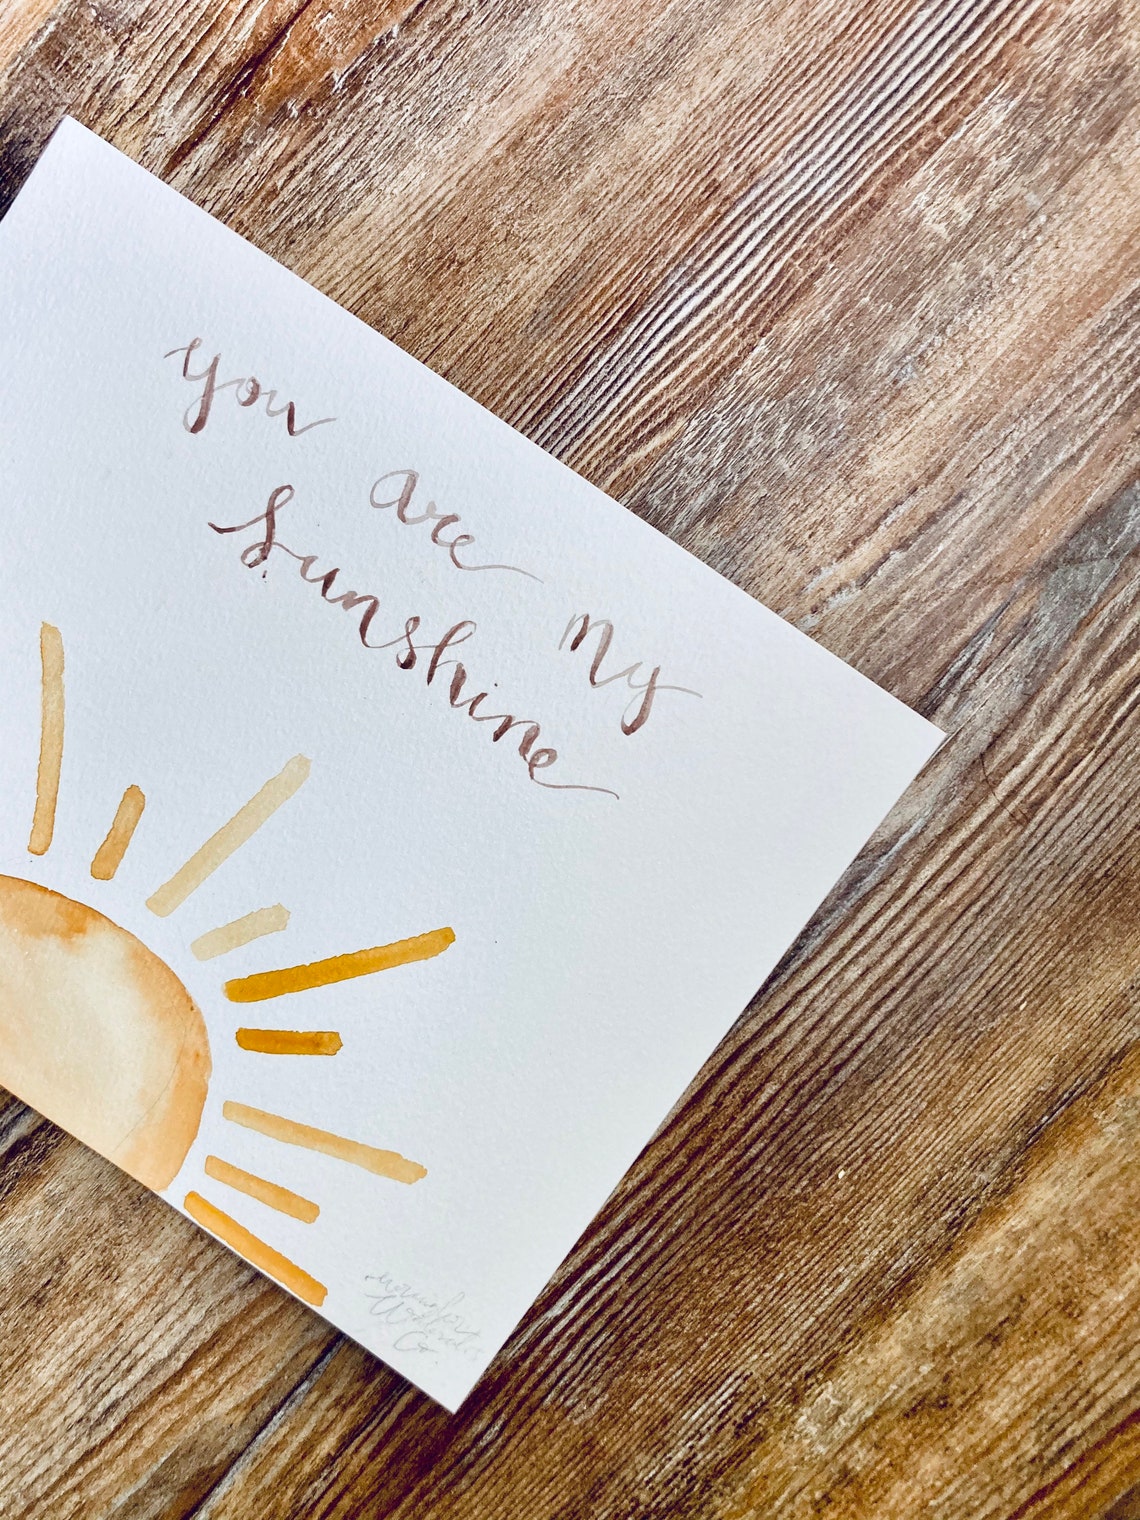 you are my
Sunshine
Co.